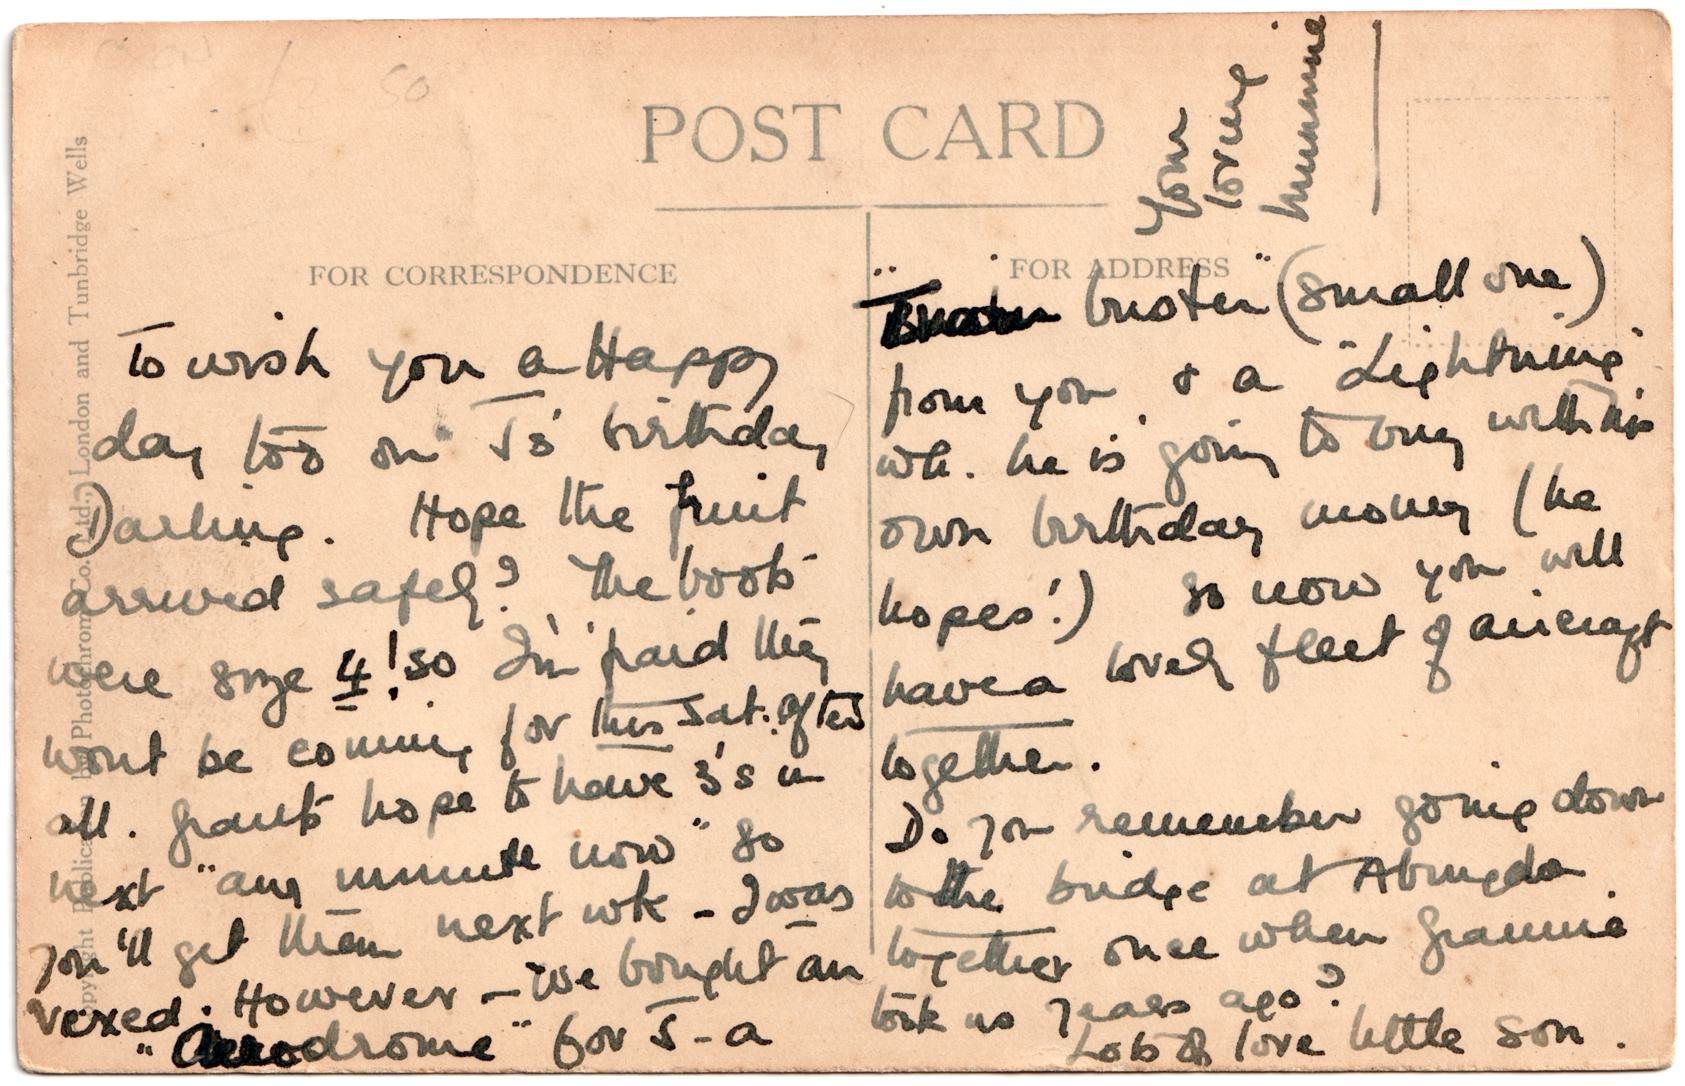 POST CARD
FOR CORRESPONDENCE
To wish you a Happy
day too on J's birthday
Darling. Hope the fruit
arrived safely? The boots
were size 4! so I'm 'fraid they
wont be coming for this Sat. after
all. Grants hope to have 3's in
next "any minute now" so
you'll get them next wk - I was
vexed. However - We bought an
"Aerodrome" for J - a
FOR ADDRESS
buster" (small one)
from you, & a "Lightning"
wh. he is going to buy with his
own birthday money (he
hopes!) So now you will
have a lovely fleet of aircraft
together.
Do you remember going down
to the bridge at Abingdon
together once when Grannie
took us years ago?
Lots of love little son.
Your
loving
Mummie
Copyright Publication by Photochrom Co. Ltd., London and Tunbridge Wells